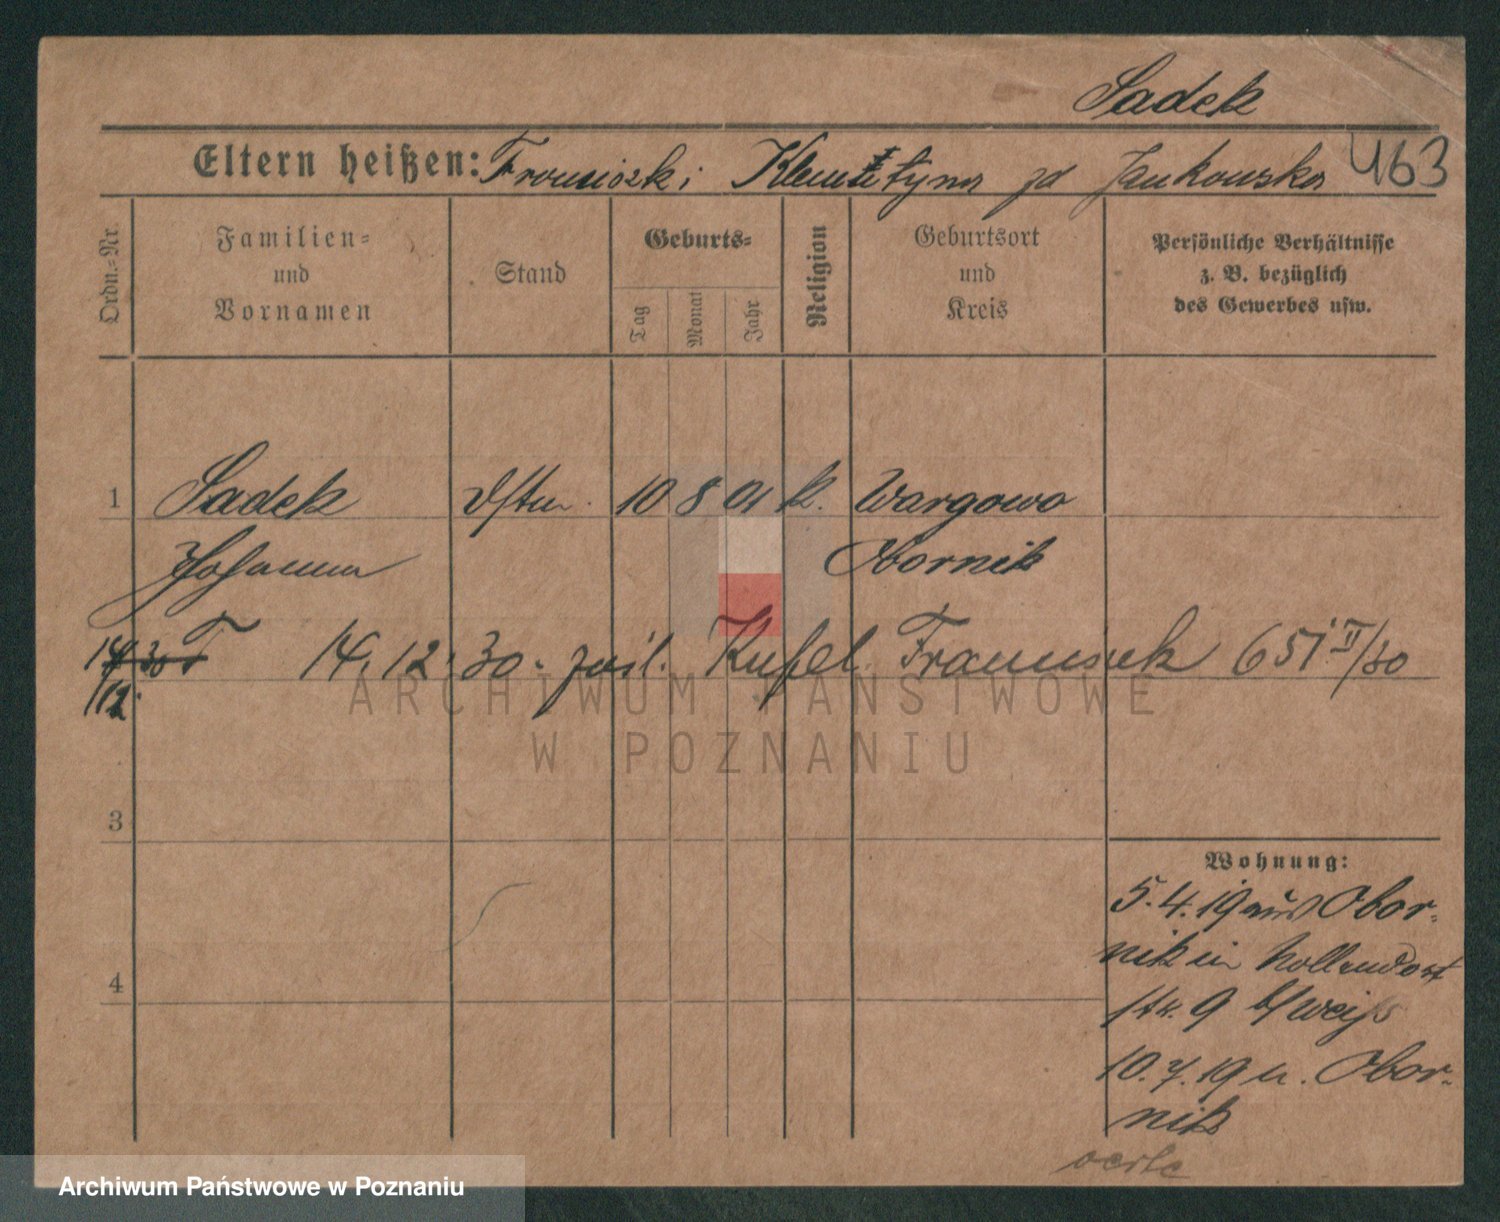 Sadek
Eltern heißen: Franciszk i Klementyna zd Jankowska 463
Ordn.-Nr
Familien-
und
Vornamen
Stand
Geburts-
Tag
Monat
Jahr
Religion
Geburtsort
und
Kreis
Persönliche Verhältnisse
z. B. bezüglich
des Gewerbes usw.
1 Sadek 10 8 01 k. Wargowo
Johanna Obornik
14. 12. 30. Kufel Franciszek 651 II/30
14/12. 30
3
4
Wohnung:
5. 4. 19 aus Obor-
nik in Hollendorf
str. 9 b/ Weiß
10. 7. 19 n. Obor-
nik
ARCHIWUM PAŃSTWOWE
W POZNANIU
Archiwum Państwowe w Poznaniu